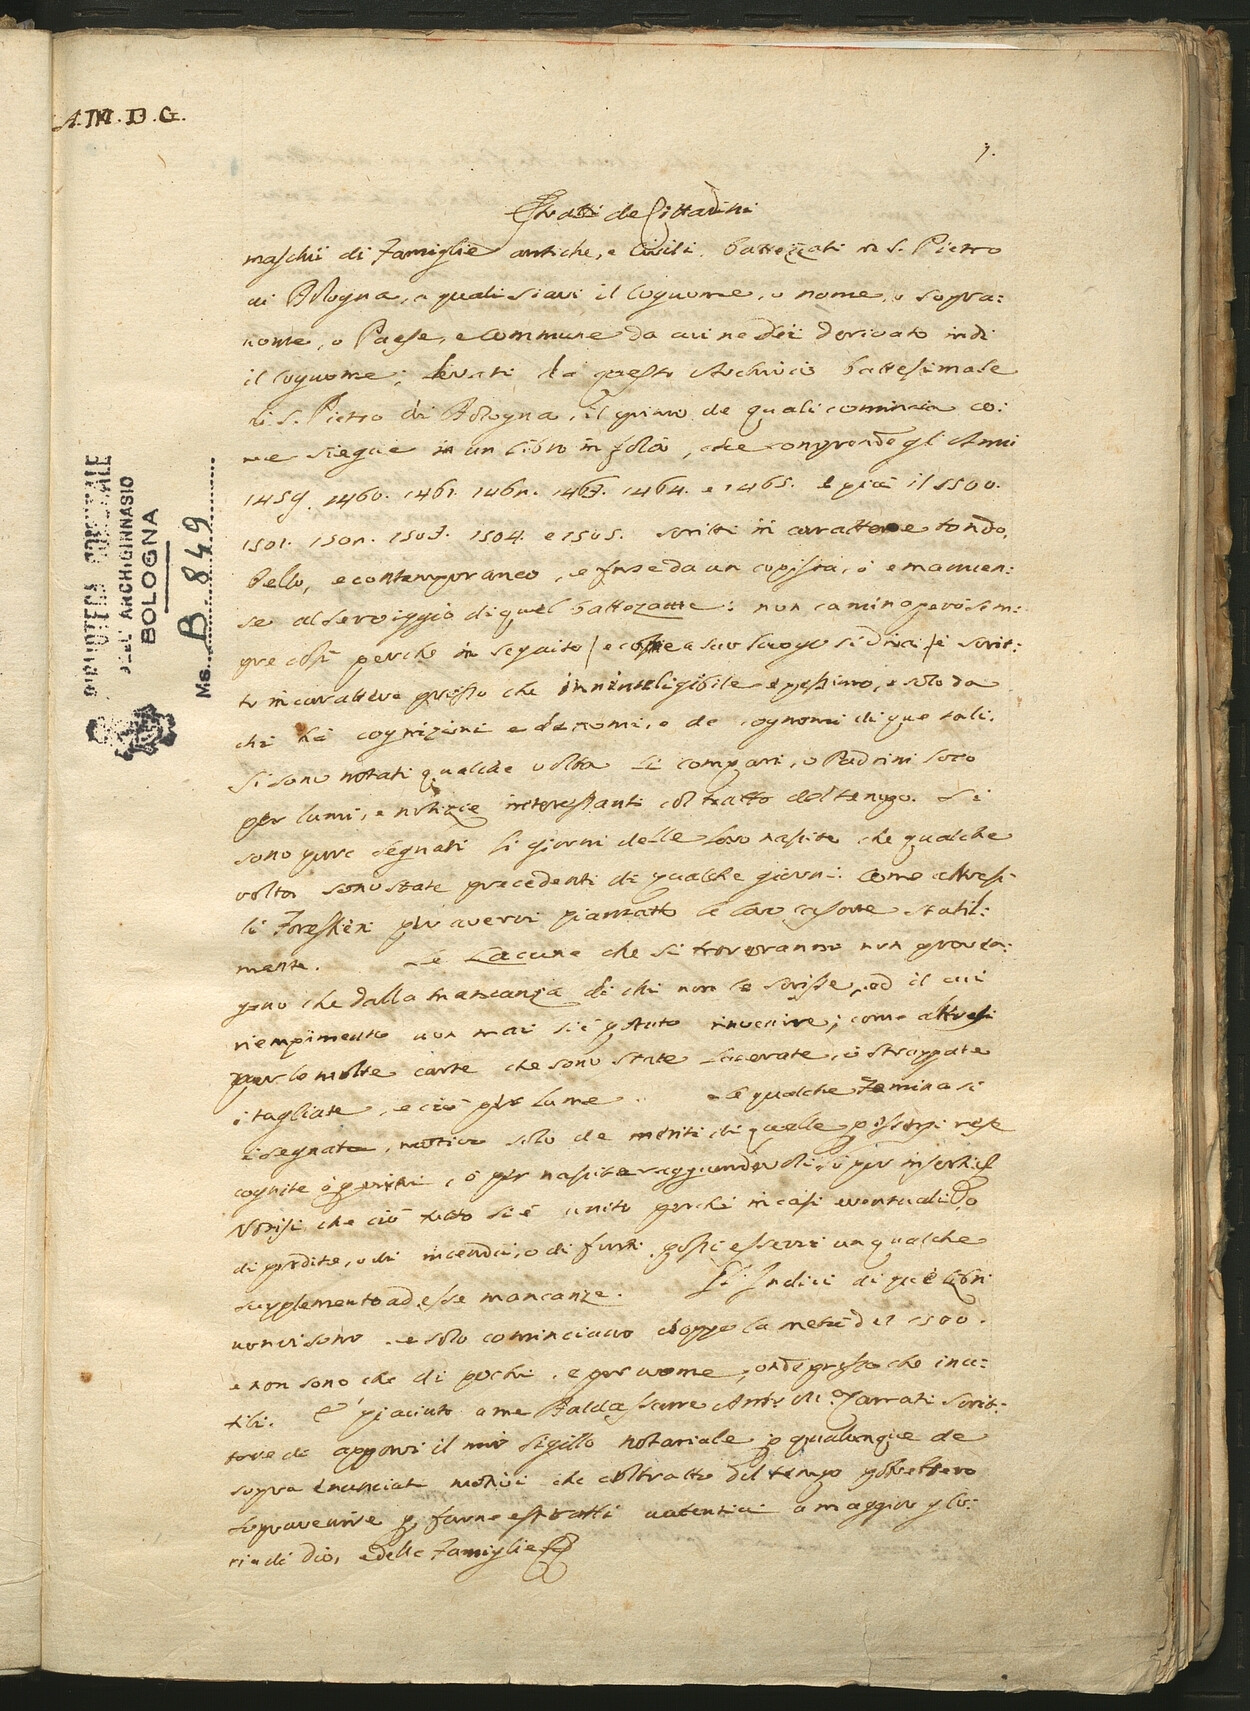 A.M.D.G.
1.
Tratti de Cittadini
maschii di Famiglie antiche, e Civili, battezzati in S. Pietro
di Bologna, a quali siavi il Cognome, o nome, o sopra:
nome, o Paese, e Commune da cui ne sii derivato indi
il Cognome; levati da questo Archivio battesimale
di S. Pietro di Bologna, il primo de quali comincia co:
me siegue in un libro in folio, che comprende gl' Anni
1459. 1460. 1461. 1462. 1463. 1464. e 1465. e più il 1500.
1501. 1502. 1503. 1504. e 1505. scritti in carattere tondo,
bello, e contemporaneo, e forse da un copista, ò emanuen:
se al serviggio di quel battezante: non camina però sem:
pre così perche in seguito / e come a suo luogo si dirà / è scrit:
to in carattere presso che inninteligibile e pessimo, e solo da
chi hà cognizioni e de nomi, e de cognomi di que tali.
Si sono notati qualche volta li compari, o Padrini loro
per lumi, e notizie interessanti col tratto del tempo. Si
sono pure segnati li giorni delle loro nascite che qualche
volta sono state precedenti di qualche giorni. Come altresi
li Foresteri per avervi piantato le loro case stabil:
mente. Le Lacune che si troveranno non proven:
gono che dalla mancanza di chi non le scrisse, ed il cui
riempimento non mai si è potuto invenire; come altresi
per le molte carte che sono state lacerate, ò strappate
ò tagliate, e ciò per lume. Se qualche Femina si
è segnata, solo de meriti di quelle
cognite ò per , ò per nascite ò per
Notisi che ciò tutto si è unito perche in casi eventuali ò
di perdite, o di incendii, o di furti possi esservi un qualche
supplemento ad esse mancanze. Li Indici di que libri
non vi sono, e solo cominciano doppo la metà del 1500.
e non sono che di pochi, e per nome, onde presso che inu:
tili. E' piaciuto a me Baldassarre Ant.o M.a Carrati Scrit:
tore di apporvi il mio sigillo notariale p qualunque de
sopra enunciati motivi che col tratto del tempo potessero
sopravenire p farne estratti autentici a maggior glo:
ria di Dio, e delle Famiglie
BIBLIOTECA COMUNALE
DELL'ARCHIGINNASIO
BOLOGNA
Ms. B. 849